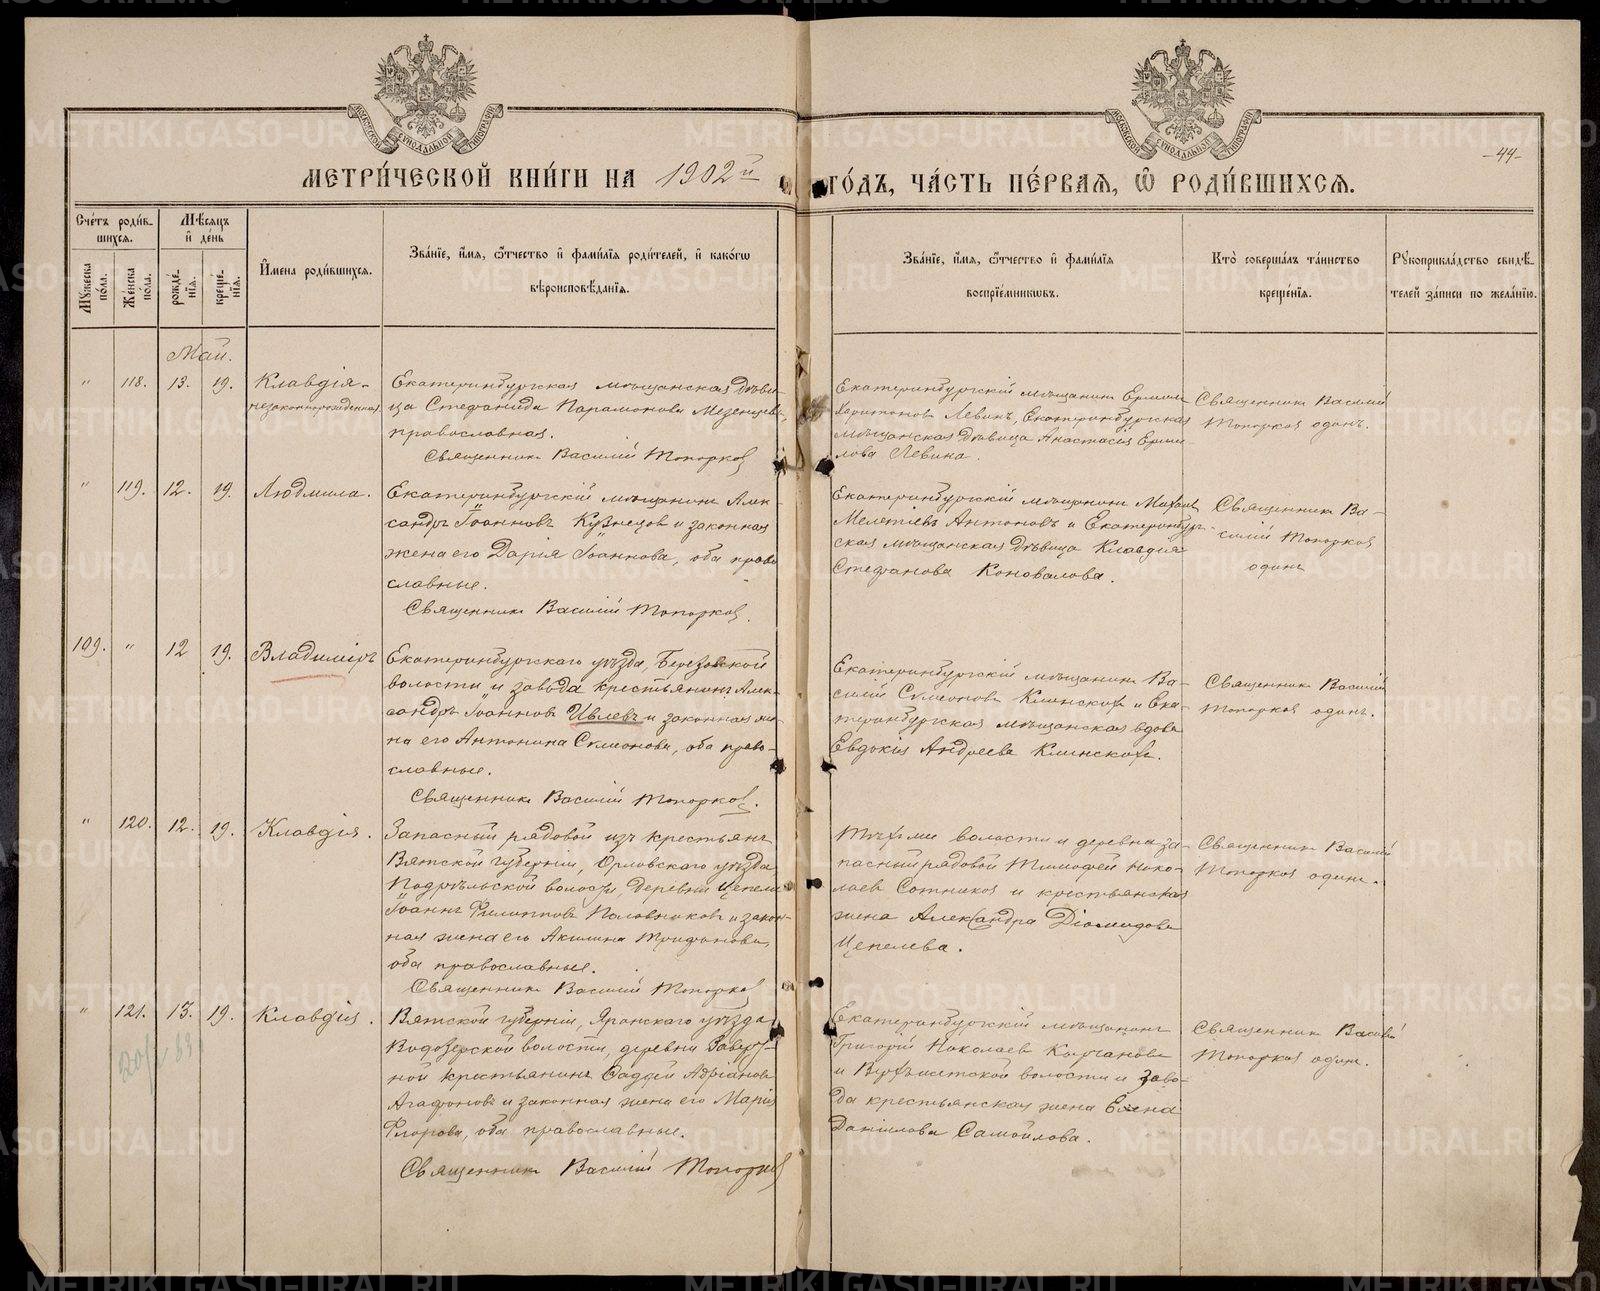 МЕТРИ́ЧЕСКОЙ КНИ́ГИ НА 1902й ГО́ДЪ, ЧА́СТЬ ПЕ́РВАѦ, Ѡ҆ РОДИ́ВШИХСѦ.
-44-
Сче́тъ роди́в-
шихсѧ.
Мѣ́сѧцъ
и҆ де́нь
Мꙋ́жеска
по́ла.
Же́нска
по́ла.
рожде́-
нїѧ.
креще́-
нїѧ.
И҆́мена роди́вшихсѧ.
Зва́нїе, и҆́мѧ, ѻ҆́тчество и҆ фами́лїѧ роди́телей, и҆ како́гѡ
вѣроисповѣ́данїѧ.
Зва́нїе, и҆́мѧ, ѻ҆́тчество и҆ фами́лїѧ
воспрїе́мникѡвъ.
Кто̀ соверша́лъ та́инство
креще́нїѧ.
Рꙋкоприкла́дство свидѣ́-
телей за́писи по жела́нїю.
Май.
" 118. 13. 19. Клавдія-
незаконнорожденная
Екатеринбургская мѣщанская дѣви-
ца Стефанида Парамонова Мезенцева,
православная.
Священникъ Василій Топорковъ
Екатеринбургскій мѣщанинъ Ермилъ
Харитоновъ Левинъ, Екатеринбургская
мѣщанская дѣвица Анастасія Ерми-
лова Левина.
Священникъ Василій
Топорковъ одинъ.
" 119. 12. 19. Людмила.
Екатеринбургскій мѣщанинъ Алек-
сандръ Іоанновъ Кузнецов и законная
жена его Дарія Іоаннова, оба право
славные.
Священникъ Василій Топорковъ.
Екатеринбургскій мѣщанинъ Михаилъ
Мелетіевъ Антоновъ и Екатеринбург-
ская мѣщанская дѣвица Клавдія
Стефанова Коновалова.
Священникъ Ва-
силій Топорковъ
одинъ
109. " 12 19. Владиміръ
Екатеринбургскаго уѣзда, Березовской
волости и завода крестьянинъ Алек-
сандръ Іоанновъ Ивлевъ и законная же-
на его Антонина Симеонова, оба право-
славные.
Священникъ Василій Топорковъ.
Екатеринбургскій мѣщанинъ Ва-
силій Симеоновъ Клинскихъ и Ека-
теринбургская мѣщанская вдова
Евдокія Андреева Клинскихъ.
Священникъ Василій
Топорковъ одинъ.
" 120. 12. 19. Клавдія.
Запасный рядовой изъ крестьянъ
Вятской губерніи, Орловскаго уѣзда,
волости, деревни Цепели
Іоаннъ Филипповъ Половниковъ и закон-
ная жена его Акилина Трифонова,
оба православные.
Священникъ Василій Топорковъ
волости и деревни за-
пасный рядовой Тимофей Нико-
лаевъ Сотниковъ и крестьянская
жена Александра Діомидова
Цепелева.
Священникъ Василій
Топорковъ одинъ.
" 121. 13. 19. Клавдія.
Вятской губерніи, Яранскаго уѣзда
Водозерской волости, деревни
крестьянинъ Фаддей Адріановъ
Агафоновъ и законная жена его Марія
Флорова, оба православные.
Священникъ Василій Топорковъ
Екатеринбургскій мѣщанинъ
Григорій Николаевъ
и Верхъисетской волости и заво-
да крестьянская жена Елена
Данилова Самойлова.
Священникъ Василій
Топорковъ одинъ.
METRIKI.GASO-URAL.RU